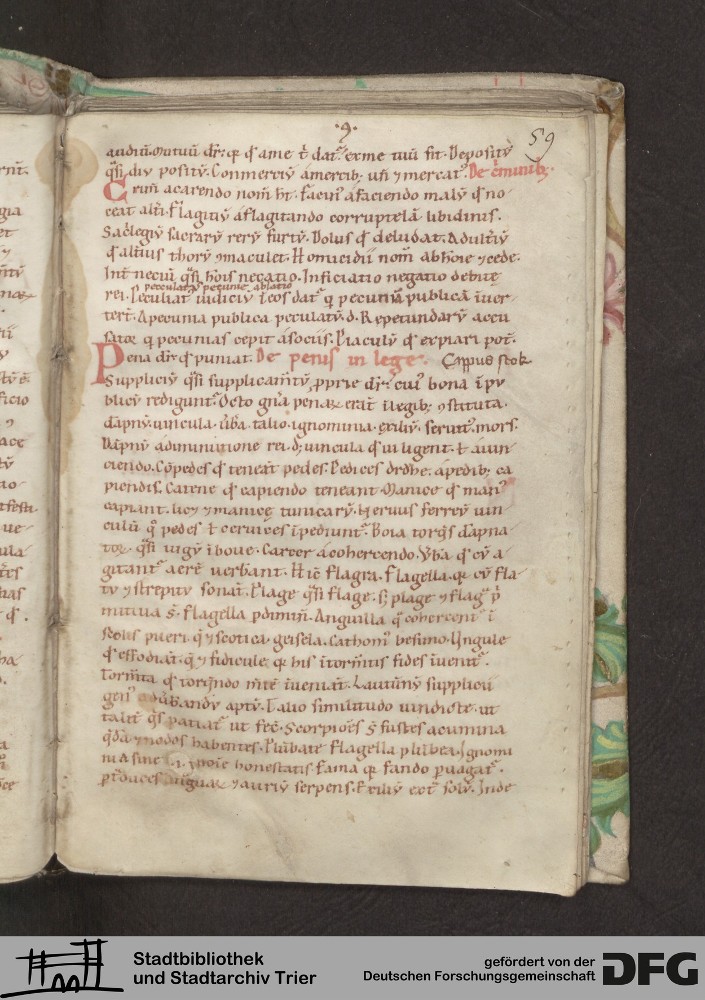 ·9·
59
audiũ. Mutuũ dr̃: qꝛ qđ a me t̃ dat᷒ ex me tuũ fit. Deposit
q̃si diu posit. Conmerciũ a mercib; uñ ⁊ mercat᷒. De c̃minib;
Criminũ a carendo nom̃ ht̃. Facin᷒ a faciendo malũ qđ no
ceat alt̃i. Flagitiũ a flagitando corruptelã libidinis.
Sac̃legiũ sacrarũ rerũ furtũ. Dolus qđ deludat. Adult̃iũ
qđ alt̃ius thorũ ⁊maculet. Homicidii nom̃ ab hõie ⁊cede.
Int̃necuũ q̃si hõis necatio. Inficiatio negatio debite
peculat᷒ pecunie ablatio
rei. Peculat᷒ iudiciũ ĩ eos dat᷒ qͥ pecuniã publicã ĩuer
tert̃. A pecunia publica peculat᷒ d̃. Repetundarũ accu
satoꝛ qͥ pecunias cepit a sociis. Piaculũ qđ expiari pot̃.
Pena dr̃ qđ puniat. De penis in lege.
Suppliciũ q̃si supplicam̃tũ, ꝓprie dr̃ cui᷒ bona ĩ pu
blicũ redigunt᷒. Octo gña penaꝝ erãt ĩ legib; ⁊stituta.
dãpnũ. uincula. ũba. talio. ignominia. exiliũ. seruit᷒. mors.
Dãpnũ a diminutione rei. d; uincula qđ uiligent. t̃ a uin
ciendo. Cõpedes qđ teneãt pedes. Pedices a pedib; ca
piendis. Catene qđ capiendo teneant. Manice qđ man᷒
capiant. licȝ ⁊ manicę tunicarũ. Neruus ferreũ uin
culũ qͦ pedes t̃ ceruices ĩpediunt᷒. Boia torq̃s dãpna
toꝝ q̃si iugũ ĩ boue. Carcer a cohercendo. Ṽba qđ cũ a
gitant᷒ aerẽ uerbant. Hiñc flagra. Flagella. qꝛ cũ fla
tu ⁊ strepitu sonãt. Plage q̃si flage. s; plage ⁊ flag᷒ p̃
mitiua s̃. Flagella p dimim̃. Anguilla qͣ coherceñt᷒ ĩ
scolis pueri
qđ effodiãt.
Torm̃ta qđ torq̃ndo m̃tẽ ĩueniat. Lautũnũ supplicii
gen᷒ ad ũbandũ aptũ. Talio similitudo uindicte. ut
talit᷒ q̃s patiat᷒ ut fec̃. Scorpiões s̃ fustes acumina
q̃dã ⁊ nodos habentes. Plũbate flagella plũbea. Ignomi
nia sine honestatis fama qꝛ fando puagat᷒.
ꝑ linguaꝝ ⁊ auriũ serpens. Exiliũ ext̃ solũ. Inde
Stadtbibliothek
und Stadtarchiv Trier
gefördert von der
Deutschen Forschungsgemeinschaft
DFG